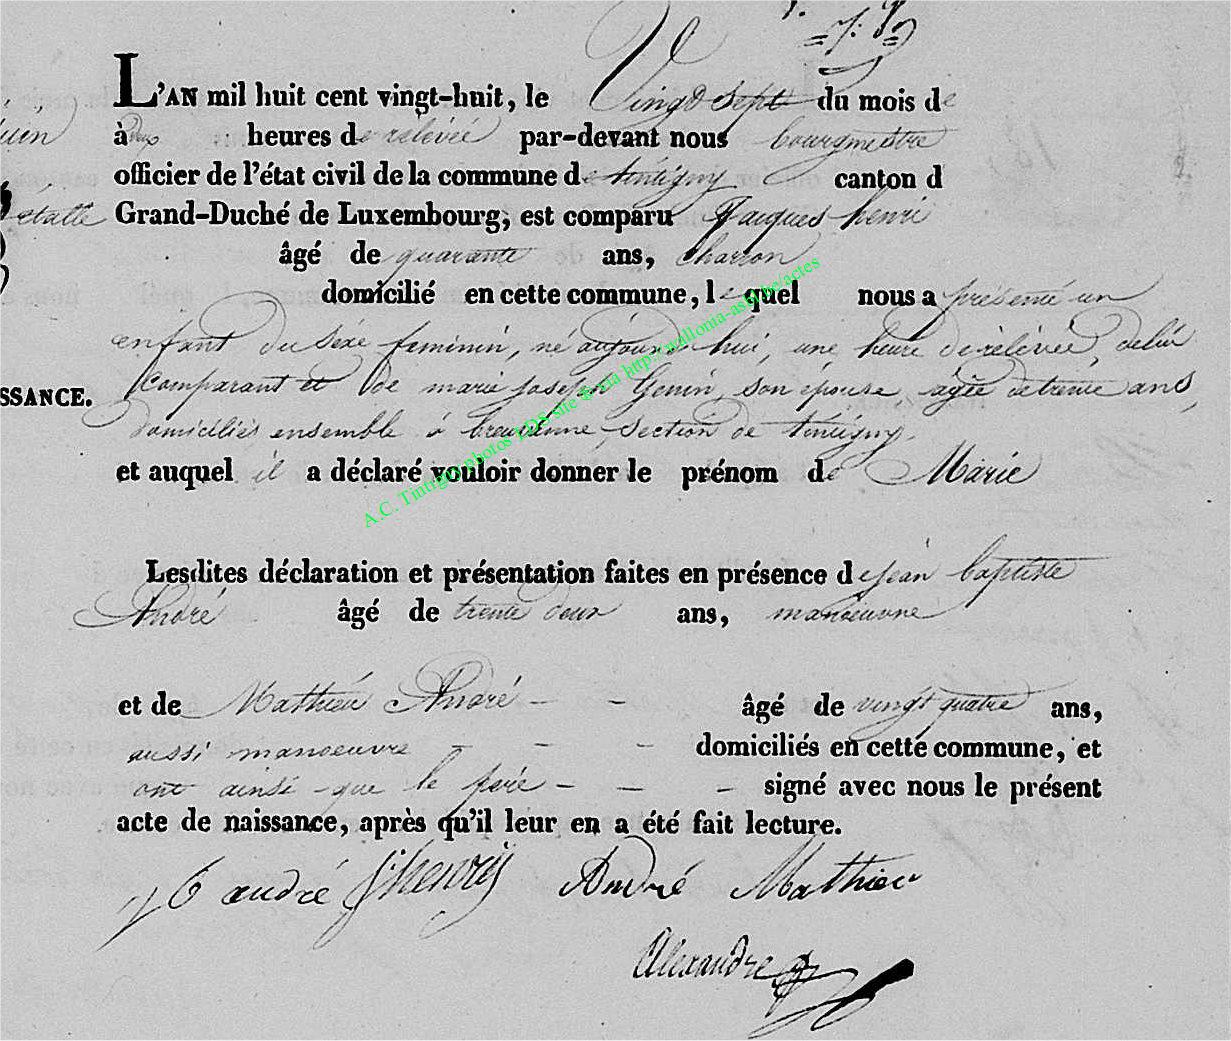 =7: 9=
L'AN mil huit cent vingt-huit, le Vingt sept du mois de
à deux heures de relévée par-devant nous bourgmestre
officier de l'état civil de la commune de tintigny canton d
Grand-Duché de Luxembourg, est comparu Jacques henri
âgé de quarante ans, charron
domicilié en cette commune, lequel nous a présenté un
enfant du sexe feminin, né aujourd'hui, une heure de relévée, de lui
SSANCE. Comparant et de marie joseph Genin, son épouse agée de trente ans,
domiciliés ensemble à breuvanne, section de tintigny.
et auquel il a déclaré vouloir donner le prénom de Marie
A.C. Tintigny photos LDS site & via http://wallonia-asbl.be/actes
Lesdites déclaration et présentation faites en présence de jean baptiste
André âgé de trente deux ans, manoeuvre
et de Mathieu André - - âgé de vingt quatre ans,
aussi manoeuvre - - - domiciliés en cette commune, et
ont ainsi que le père - - - signé avec nous le présent
acte de naissance, après qu'il leur en a été fait lecture.
andré J henry André Mathieu
Alexandre